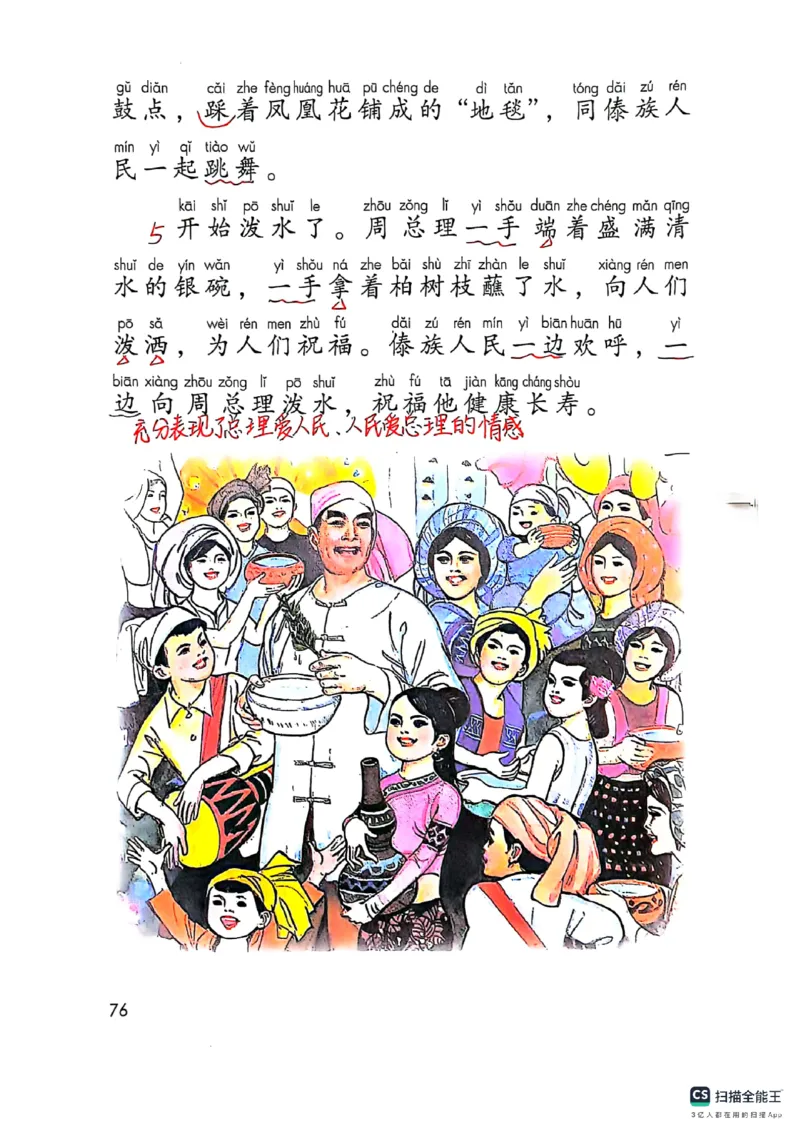 gǔ diǎn cǎi zhe fèng huáng huā pū chéng de dì tǎn tóng dǎi zú rén
鼓点，踩着凤凰花铺成的“地毯”，同傣族人
mín yì qǐ tiào wǔ
民一起跳舞。
kāi shǐ pō shuǐ le zhōu zǒng lǐ yì shǒu duān zhe chéng mǎn qīng
5 开始泼水了。周总理一手端着盛满清
shuǐ de yín wǎn yì shǒu ná zhe bǎi shù zhī zhàn le shuǐ xiàng rén men
水的银碗，一手拿着柏树枝蘸了水，向人们
pō sǎ wèi rén men zhù fú dǎi zú rén mín yì biān huān hū yì
泼洒，为人们祝福。傣族人民一边欢呼，一
biān xiàng zhōu zǒng lǐ pō shuǐ zhù fú tā jiàn kāng cháng shòu
边向周总理泼水，祝福他健康长寿。
充分表现了总理爱人民、人民爱总理的情感
76
CS 扫描全能王
3亿人都在用的扫描App